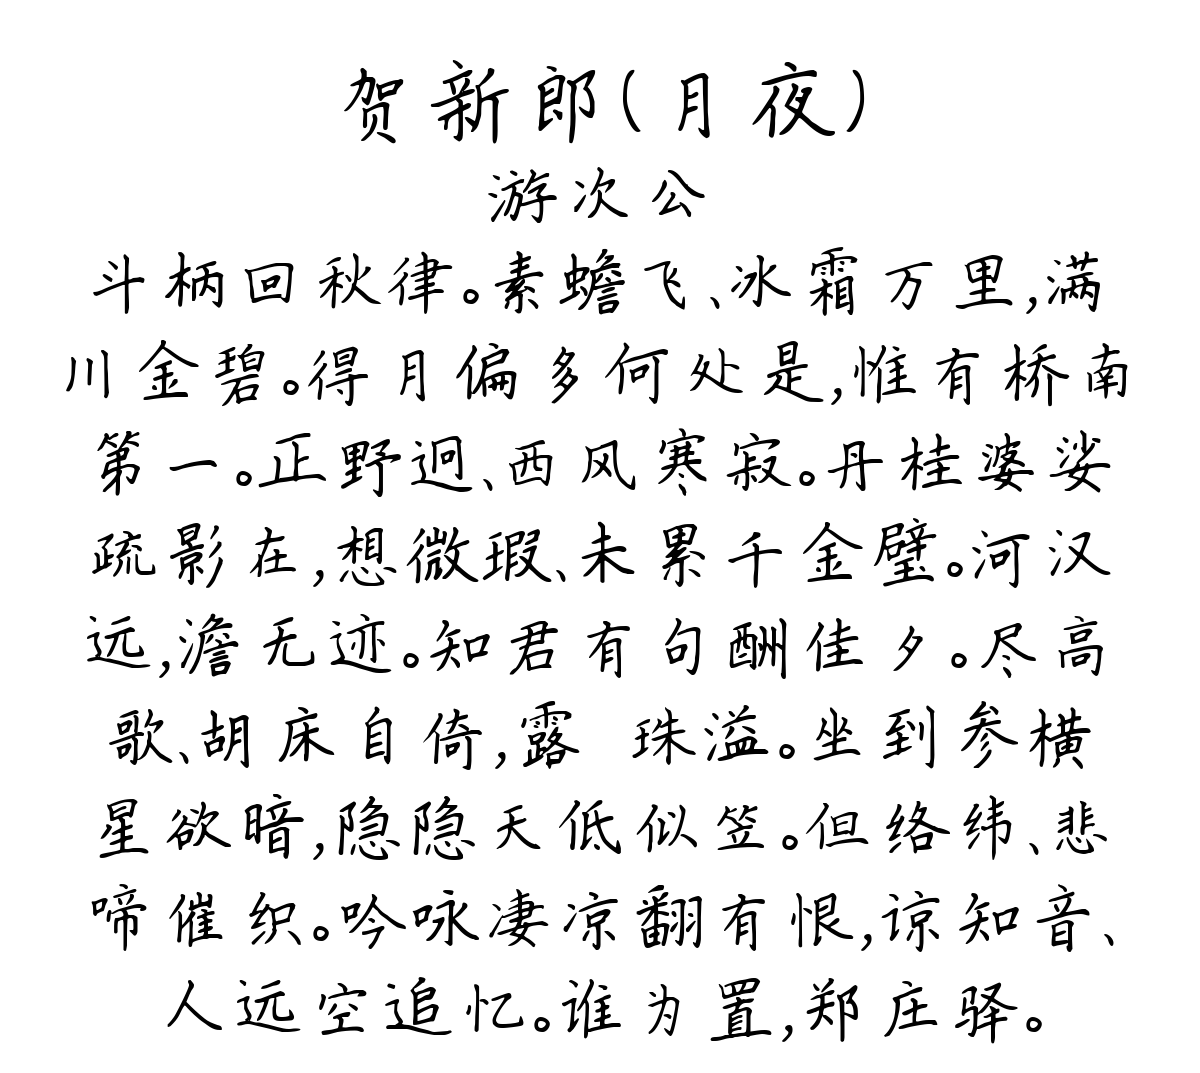 贺新郎(月夜)
游次公
斗柄回秋律。素蟾飞、冰霜万里,满
川金碧。得月偏多何处是,惟有桥南
第一。正野迥、西风寒寂。丹桂婆娑
疏影在,想微瑕、未累千金璧。河汉
远,澹无迹。知君有句酬佳夕。尽高
歌、胡床自倚,露 珠溢。坐到参横
星欲暗,隐隐天低似笠。但络纬、悲
啼催织。吟咏凄凉翻有恨,谅知音、
人远空追忆。谁为置,郑庄驿。